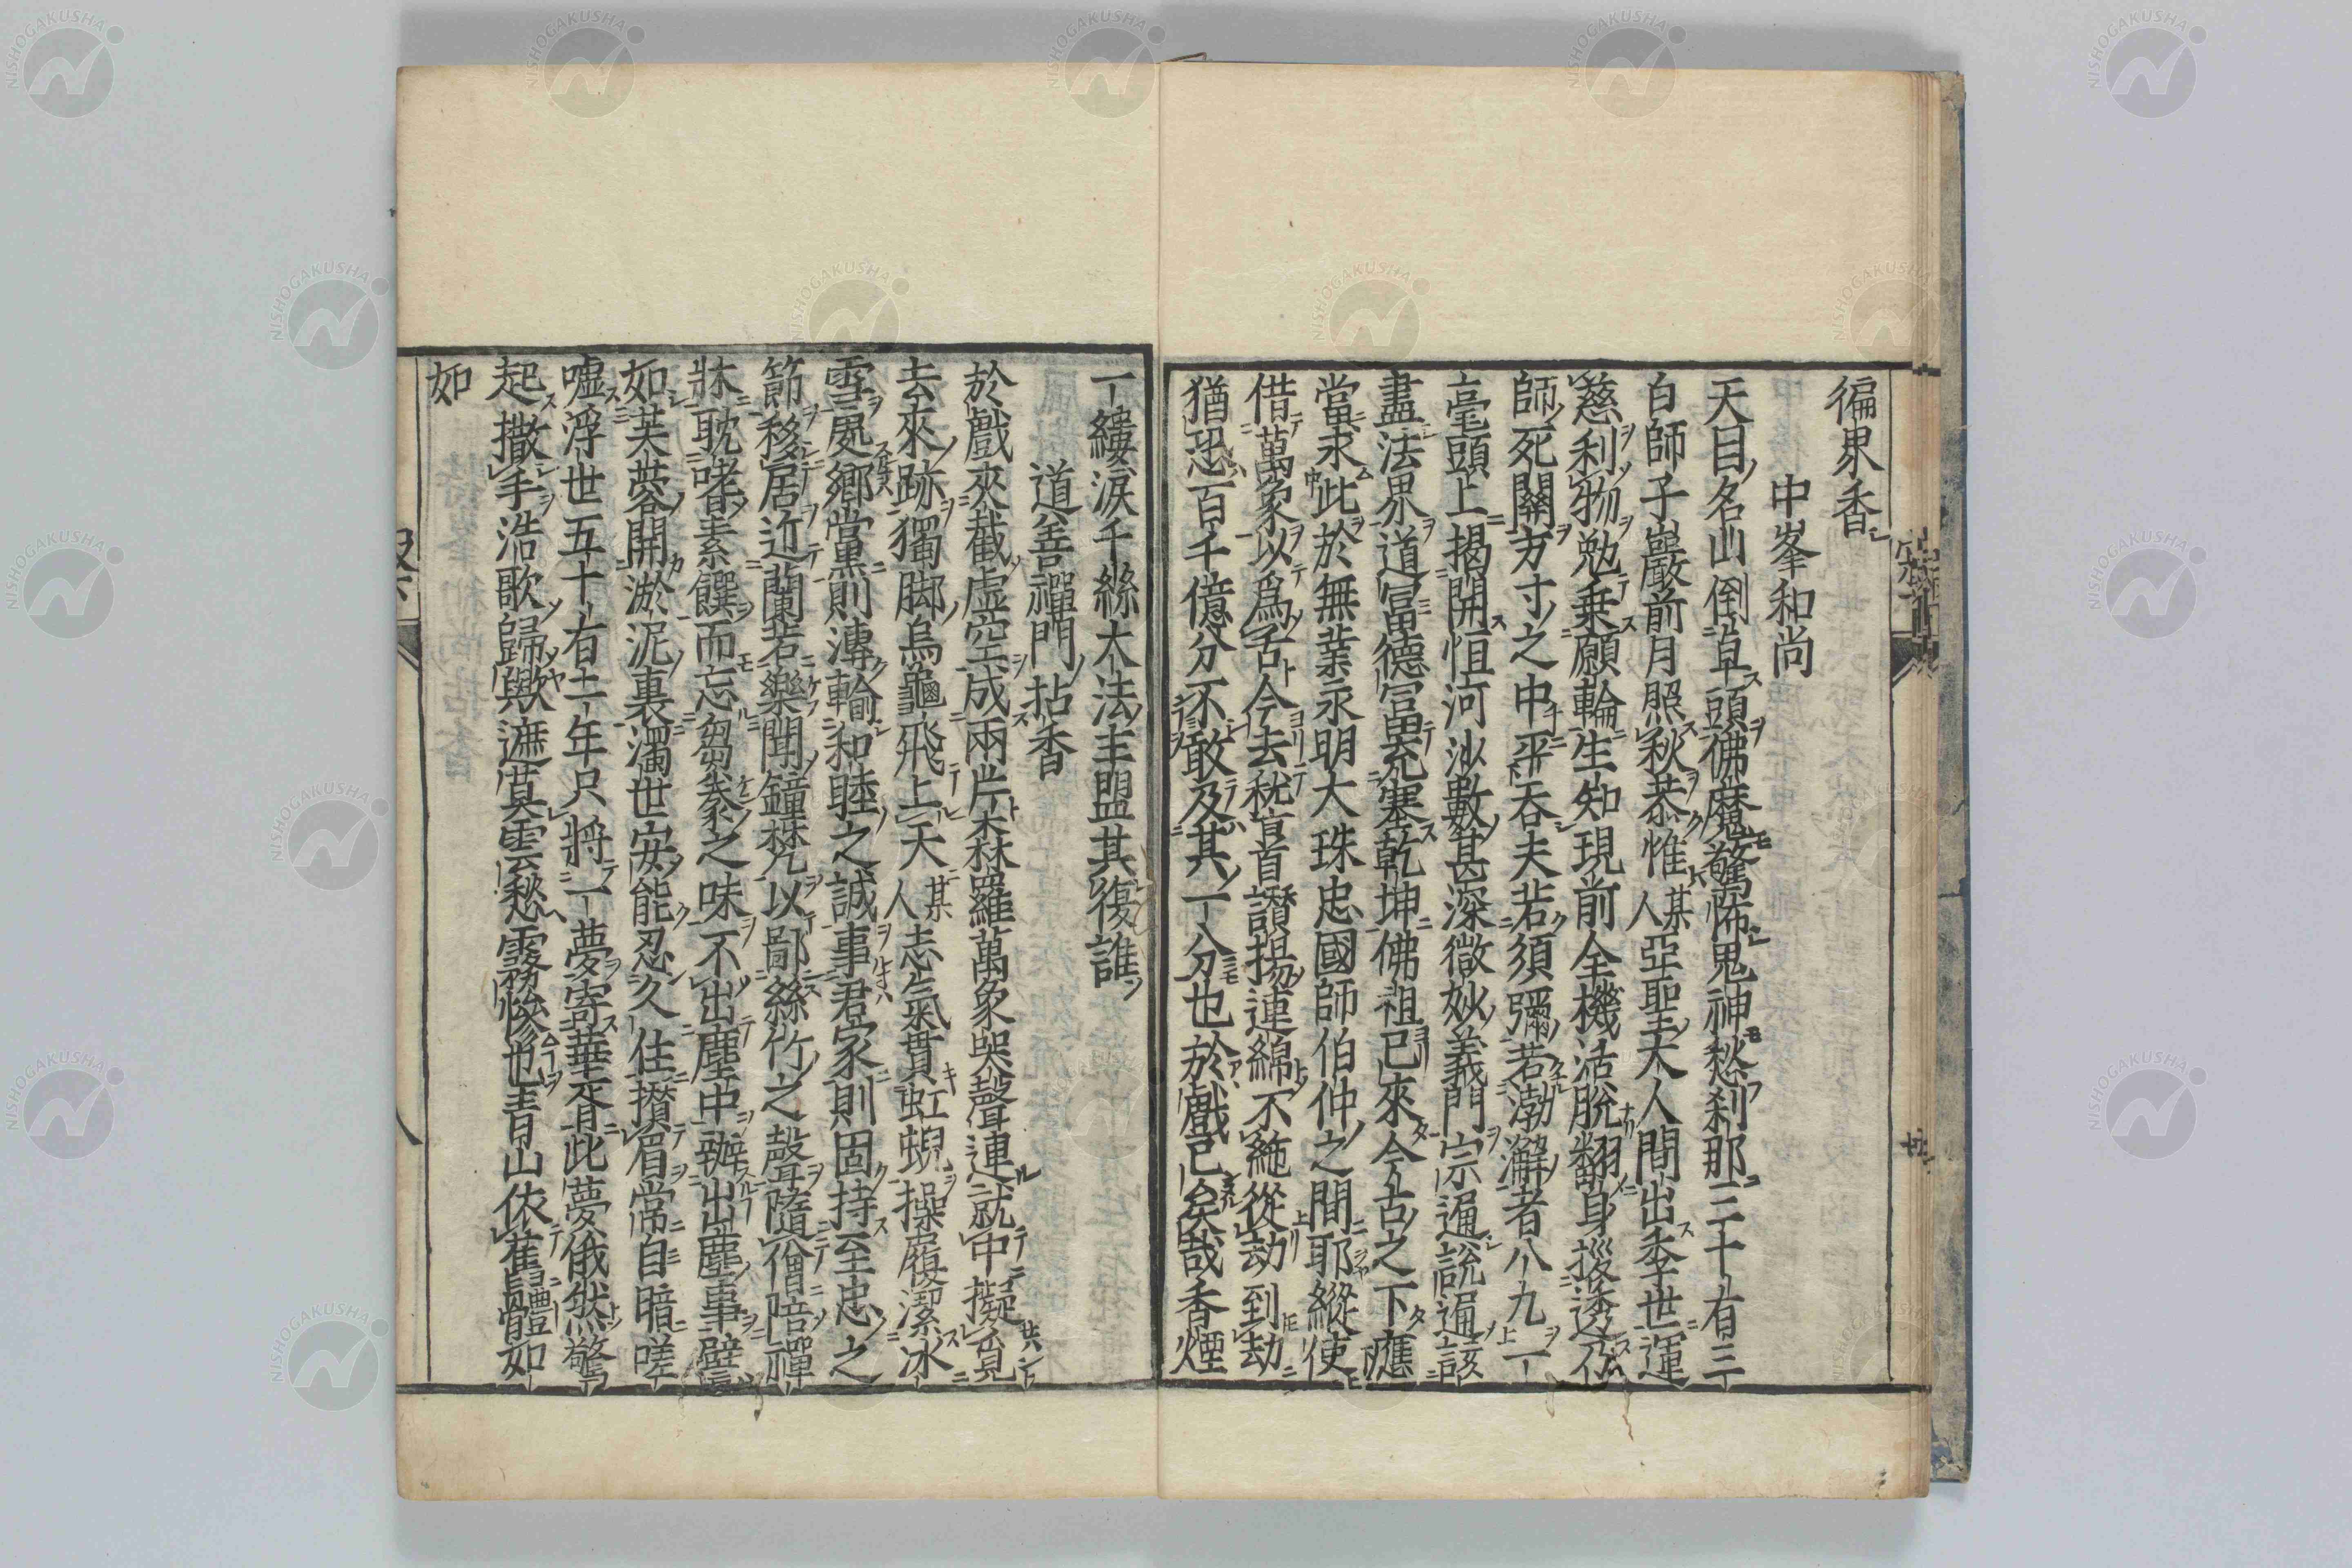 徧界香
中峯和尚
天目名山倒卓頭佛魔驚怖鬼神愁刹那三十有三
白師子巖前月照秋恭惟某人亞聖大人間出季世運
慈利物勉乗願輪生知現前全機活脱翻身拶透
師死關方寸之中平吞夫若須彌若渤澥者八九一
毫頭上揭開恒河沙數甚深微妙義門宗通說通該
盡法界道冨德冨充塞乾坤佛祖已來今古之下應
當求此於無業永明大珠忠國師伯仲之間耶縱使
借萬象以爲舌今去稽首讚揚連綿不絶從劫到劫
猶恐百千億分不敢及其一分也於戲已矣哉香煙
一縷淚千絲大法主盟其復誰
道善禪門拈香
於戲來截虚空成兩片森羅萬象哭聲連就中擬覔
去來跡獨脚烏龜飛上天某人志氣貫虹蜺操履潔冰
雪處鄕黨則漙輪和睦之誠事君家則固持至忠之
節移居近蘭若樂聞鐘梵以鄙絲竹之聲隨僧陪禪
牀耽嗜素饌而忘芻豢之味不出塵中辦出塵事譬
如芙蓉開淤泥裏濁世安能忍久住攅眉常自暗嗟
嘘浮世五十有二年只將一夢寄華胥此夢俄然驚
起撒手浩歌歸歟遮莫雲愁霧慘也青山依舊體如
如